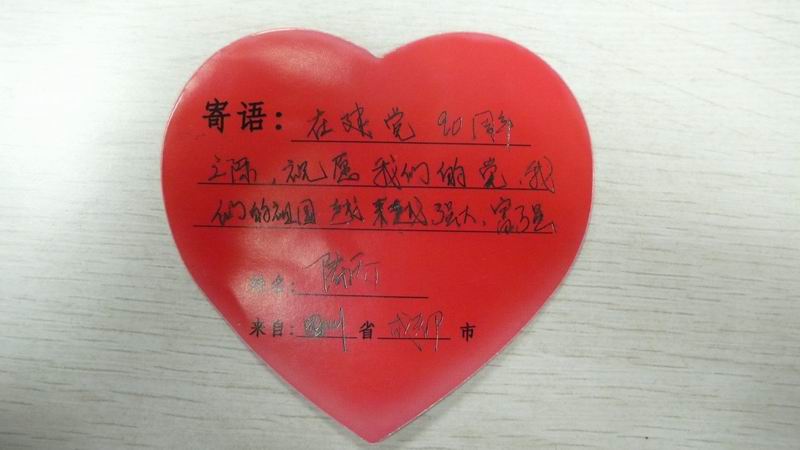 寄语：在建党90周年
之际，祝愿我们的党、我
们的祖国越来越强大、富强
姓名：
来自：四川省成都市